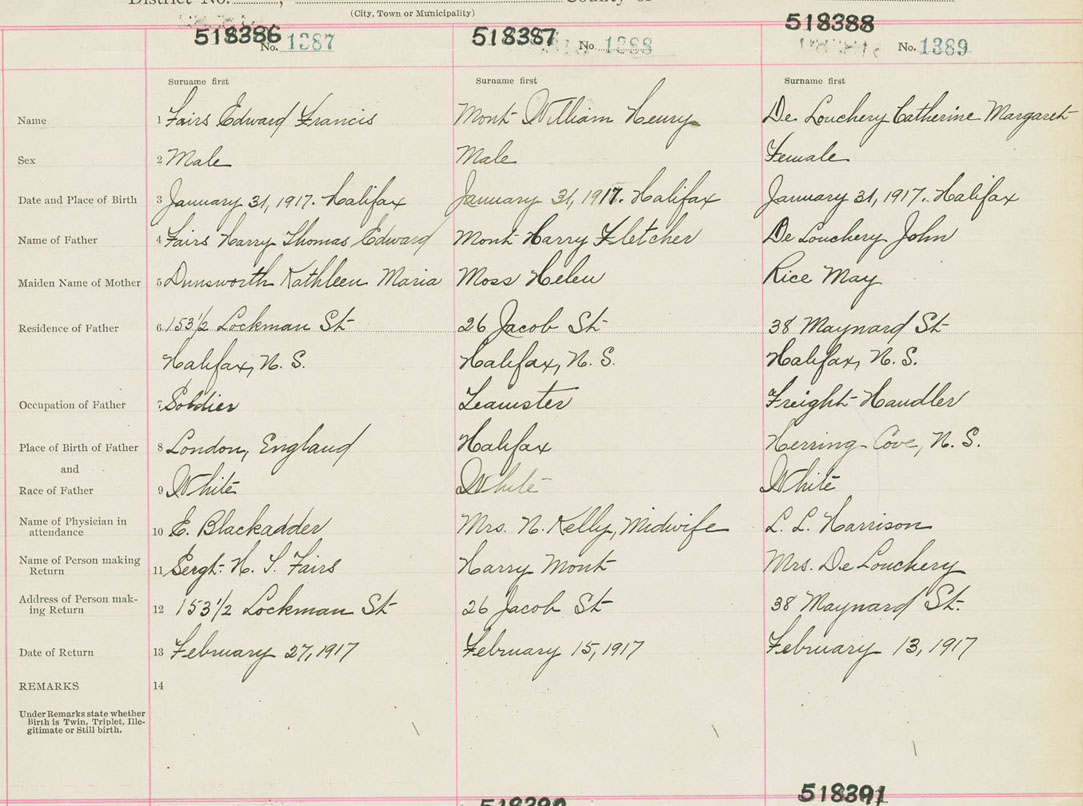 District No. , County of
(City, Town or Municipality)
518386 No. 1387 518387 No. 1388 518388 No. 1389
Surname first Surname first Surname first
Name 1 Fairs Edward Francis Mont William Henry De Louchery Catherine Margaret
Sex 2 Male Male Female
Date and Place of Birth 3 January 31, 1917. Halifax January 31, 1917. Halifax January 31, 1917. Halifax
Name of Father 4 Fairs Harry Thomas Edward Mont Harry Fletcher De Louchery John
Maiden Name of Mother 5 Dunsworth Kathleen Maria Moss Helen Rice May
Residence of Father 6 153½ Lockman St 26 Jacob St 38 Maynard St
Halifax, N. S. Halifax, N. S. Halifax, N. S.
Occupation of Father 7 Soldier Teamster Freight Handler
Place of Birth of Father 8 London, England Halifax Herring Cove, N. S.
and
Race of Father 9 White White White
Name of Physician in
attendance 10 E. Blackadder Mrs. N. Kelly, Midwife L. L. Harrison
Name of Person making
Return 11 Sergt. H. T. Fairs Harry Mont Mrs. De Louchery
Address of Person mak-
ing Return 12 153½ Lockman St 26 Jacob St 38 Maynard St.
Date of Return 13 February 27, 1917 February 15, 1917 February 13, 1917
REMARKS 14
Under Remarks state whether
Birth is Twin, Triplet, Ille-
gitimate or Still birth.
518390 518391